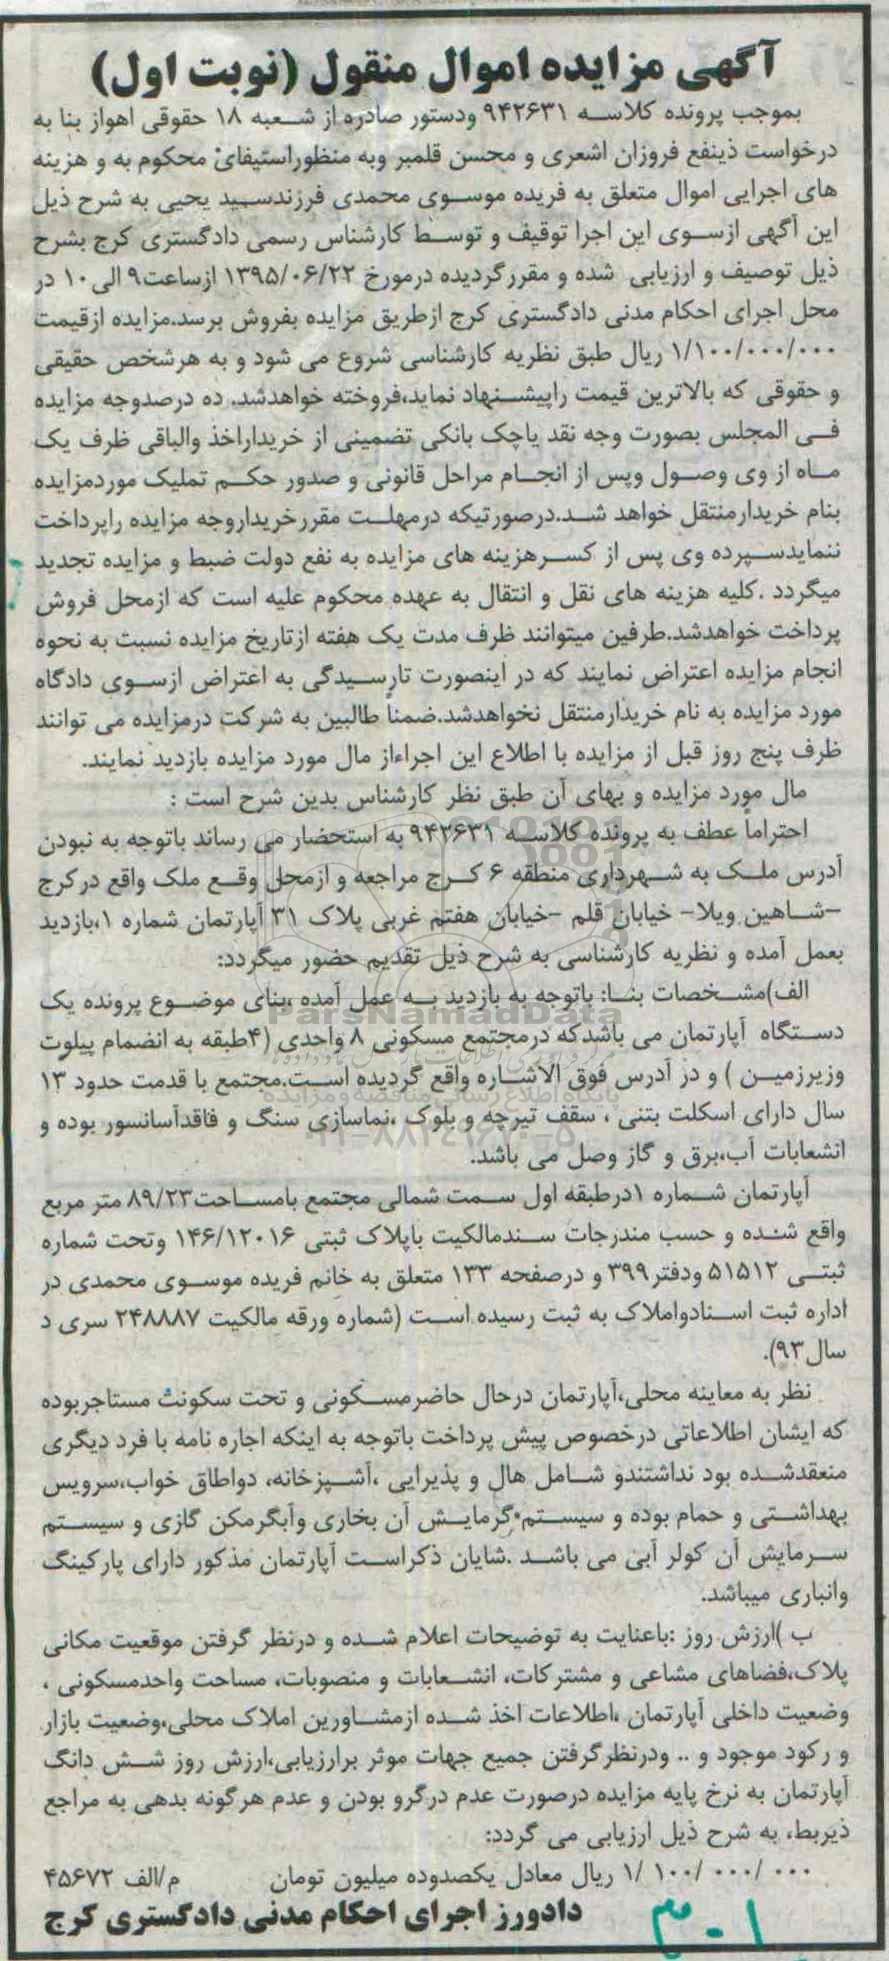 آگهی مزایده اموال منقول (نوبت اول)
بموجب پرونده کلاسه ۹۴۲۶۳۱ ودستور صادره از شعبه ۱۸ حقوقی اهواز بنا به
درخواست ذینفع فروزان اشعری و محسن قلمبر وبه منظوراستیفای محکوم به و هزینه
های اجرایی اموال متعلق به فریده موسوی محمدی فرزندسید یحیی به شرح ذیل
این آگهی ازسوی این اجرا توقیف و توسط کارشناس رسمی دادگستری کرج بشرح
ذیل توصیف و ارزیابی شده و مقررگردیده درمورخ ۱۳۹۵/۰۶/۲۲ ازساعت۹ الی۱۰ در
محل اجرای احکام مدنی دادگستری کرج ازطریق مزایده بفروش برسد.مزایده ازقیمت
۱/۱۰۰/۰۰۰/۰۰۰ ریال طبق نظریه کارشناسی شروع می شود و به هرشخص حقیقی
و حقوقی که بالاترین قیمت راپیشنهاد نماید،فروخته خواهدشد. ده درصدوجه مزایده
فی المجلس بصورت وجه نقد یاچک بانکی تضمینی از خریداراخذ والباقی ظرف یک
ماه از وی وصول وپس از انجام مراحل قانونی و صدور حکم تملیک موردمزایده
بنام خریدارمنتقل خواهد شد.درصورتیکه درمهلت مقررخریداروجه مزایده راپرداخت
ننمایدسپرده وی پس از کسرهزینه های مزایده به نفع دولت ضبط و مزایده تجدید
میگردد .کلیه هزینه های نقل و انتقال به عهده محکوم علیه است که ازمحل فروش
پرداخت خواهدشد.طرفین میتوانند ظرف مدت یک هفته ازتاریخ مزایده نسبت به نحوه
انجام مزایده اعتراض نمایند که در اینصورت تارسیدگی به اعتراض ازسوی دادگاه
مورد مزایده به نام خریدارمنتقل نخواهدشد.ضمناً طالبین به شرکت درمزایده می توانند
ظرف پنج روز قبل از مزایده با اطلاع این اجراءاز مال مورد مزایده بازدید نمایند.
مال مورد مزایده و بهای آن طبق نظر کارشناس بدین شرح است :
احتراماً عطف به پرونده کلاسه ۹۴۲۶۳۱ به استحضار می رساند باتوجه به نبودن
آدرس ملک به شهرداری منطقه ۶ کرج مراجعه و ازمحل وقع ملک واقع درکرج
–شاهین ویلا– خیابان قلم –خیابان هفتم غربی پلاک ۳۱ آپارتمان شماره ۱،بازدید
بعمل آمده و نظریه کارشناسی به شرح ذیل تقدیم حضور میگردد:
الف)مشخصات بنا: باتوجه به بازدید به عمل آمده ،بنای موضوع پرونده یک
ParsNamadData
دستگاه آپارتمان می باشدکه درمجتمع مسکونی ۸ واحدی (۴طبقه به انضمام پیلوت
وزیرزمین ) و در آدرس فوق الاشاره واقع گردیده است.مجتمع با قدمت حدود ۱۳
پایگاه اطلاع رسانی مناقصه و مزایده
سال دارای اسکلت بتنی ، سقف تیرچه و بلوک ،نماسازی سنگ و فاقدآسانسور بوده و
۰۲۱-۸۸۳۴۹۶۷۰-۵
انشعابات آب،برق و گاز وصل می باشد.
آپارتمان شماره ۱درطبقه اول سمت شمالی مجتمع بامساحت۸۹/۲۳ متر مربع
واقع شده و حسب مندرجات سندمالکیت باپلاک ثبتی ۱۴۶/۱۲۰۱۶ وتحت شماره
ثبتی ۵۱۵۱۲ ودفتر۳۹۹ و درصفحه ۱۳۳ متعلق به خانم فریده موسوی محمدی در
اداره ثبت اسنادواملاک به ثبت رسیده است (شماره ورقه مالکیت ۲۴۸۸۸۷ سری د
سال۹۳).
نظر به معاینه محلی،آپارتمان درحال حاضرمسکونی و تحت سکونت مستاجربوده
که ایشان اطلاعاتی درخصوص پیش پرداخت باتوجه به اینکه اجاره نامه با فرد دیگری
منعقدشده بود نداشتندو شامل هال و پذیرایی ،آشپزخانه، دواطاق خواب،سرویس
بهداشتی و حمام بوده و سیستم گرمایش آن بخاری وآبگرمکن گازی و سیستم
سرمایش آن کولر آبی می باشد .شایان ذکراست آپارتمان مذکور دارای پارکینگ
وانباری میباشد.
ب )ارزش روز :باعنایت به توضیحات اعلام شده و درنظر گرفتن موقعیت مکانی
پلاک،فضاهای مشاعی و مشترکات، انشعابات و منصوبات، مساحت واحدمسکونی ،
وضعیت داخلی آپارتمان ،اطلاعات اخذ شده ازمشاورین املاک محلی،وضعیت بازار
و رکود موجود و .. ودرنظرگرفتن جمیع جهات موثر برارزیابی،ارزش روز شش دانگ
آپارتمان به نرخ پایه مزایده درصورت عدم درگرو بودن و عدم هرگونه بدهی به مراجع
ذیربط، به شرح ذیل ارزیابی می گردد:
۱/ ۱۰۰/ ۰۰۰/ ۰۰۰ ریال معادل یکصدوده میلیون تومان م/الف ۴۵۶۷۲
دادورز اجرای احکام مدنی دادگستری کرج